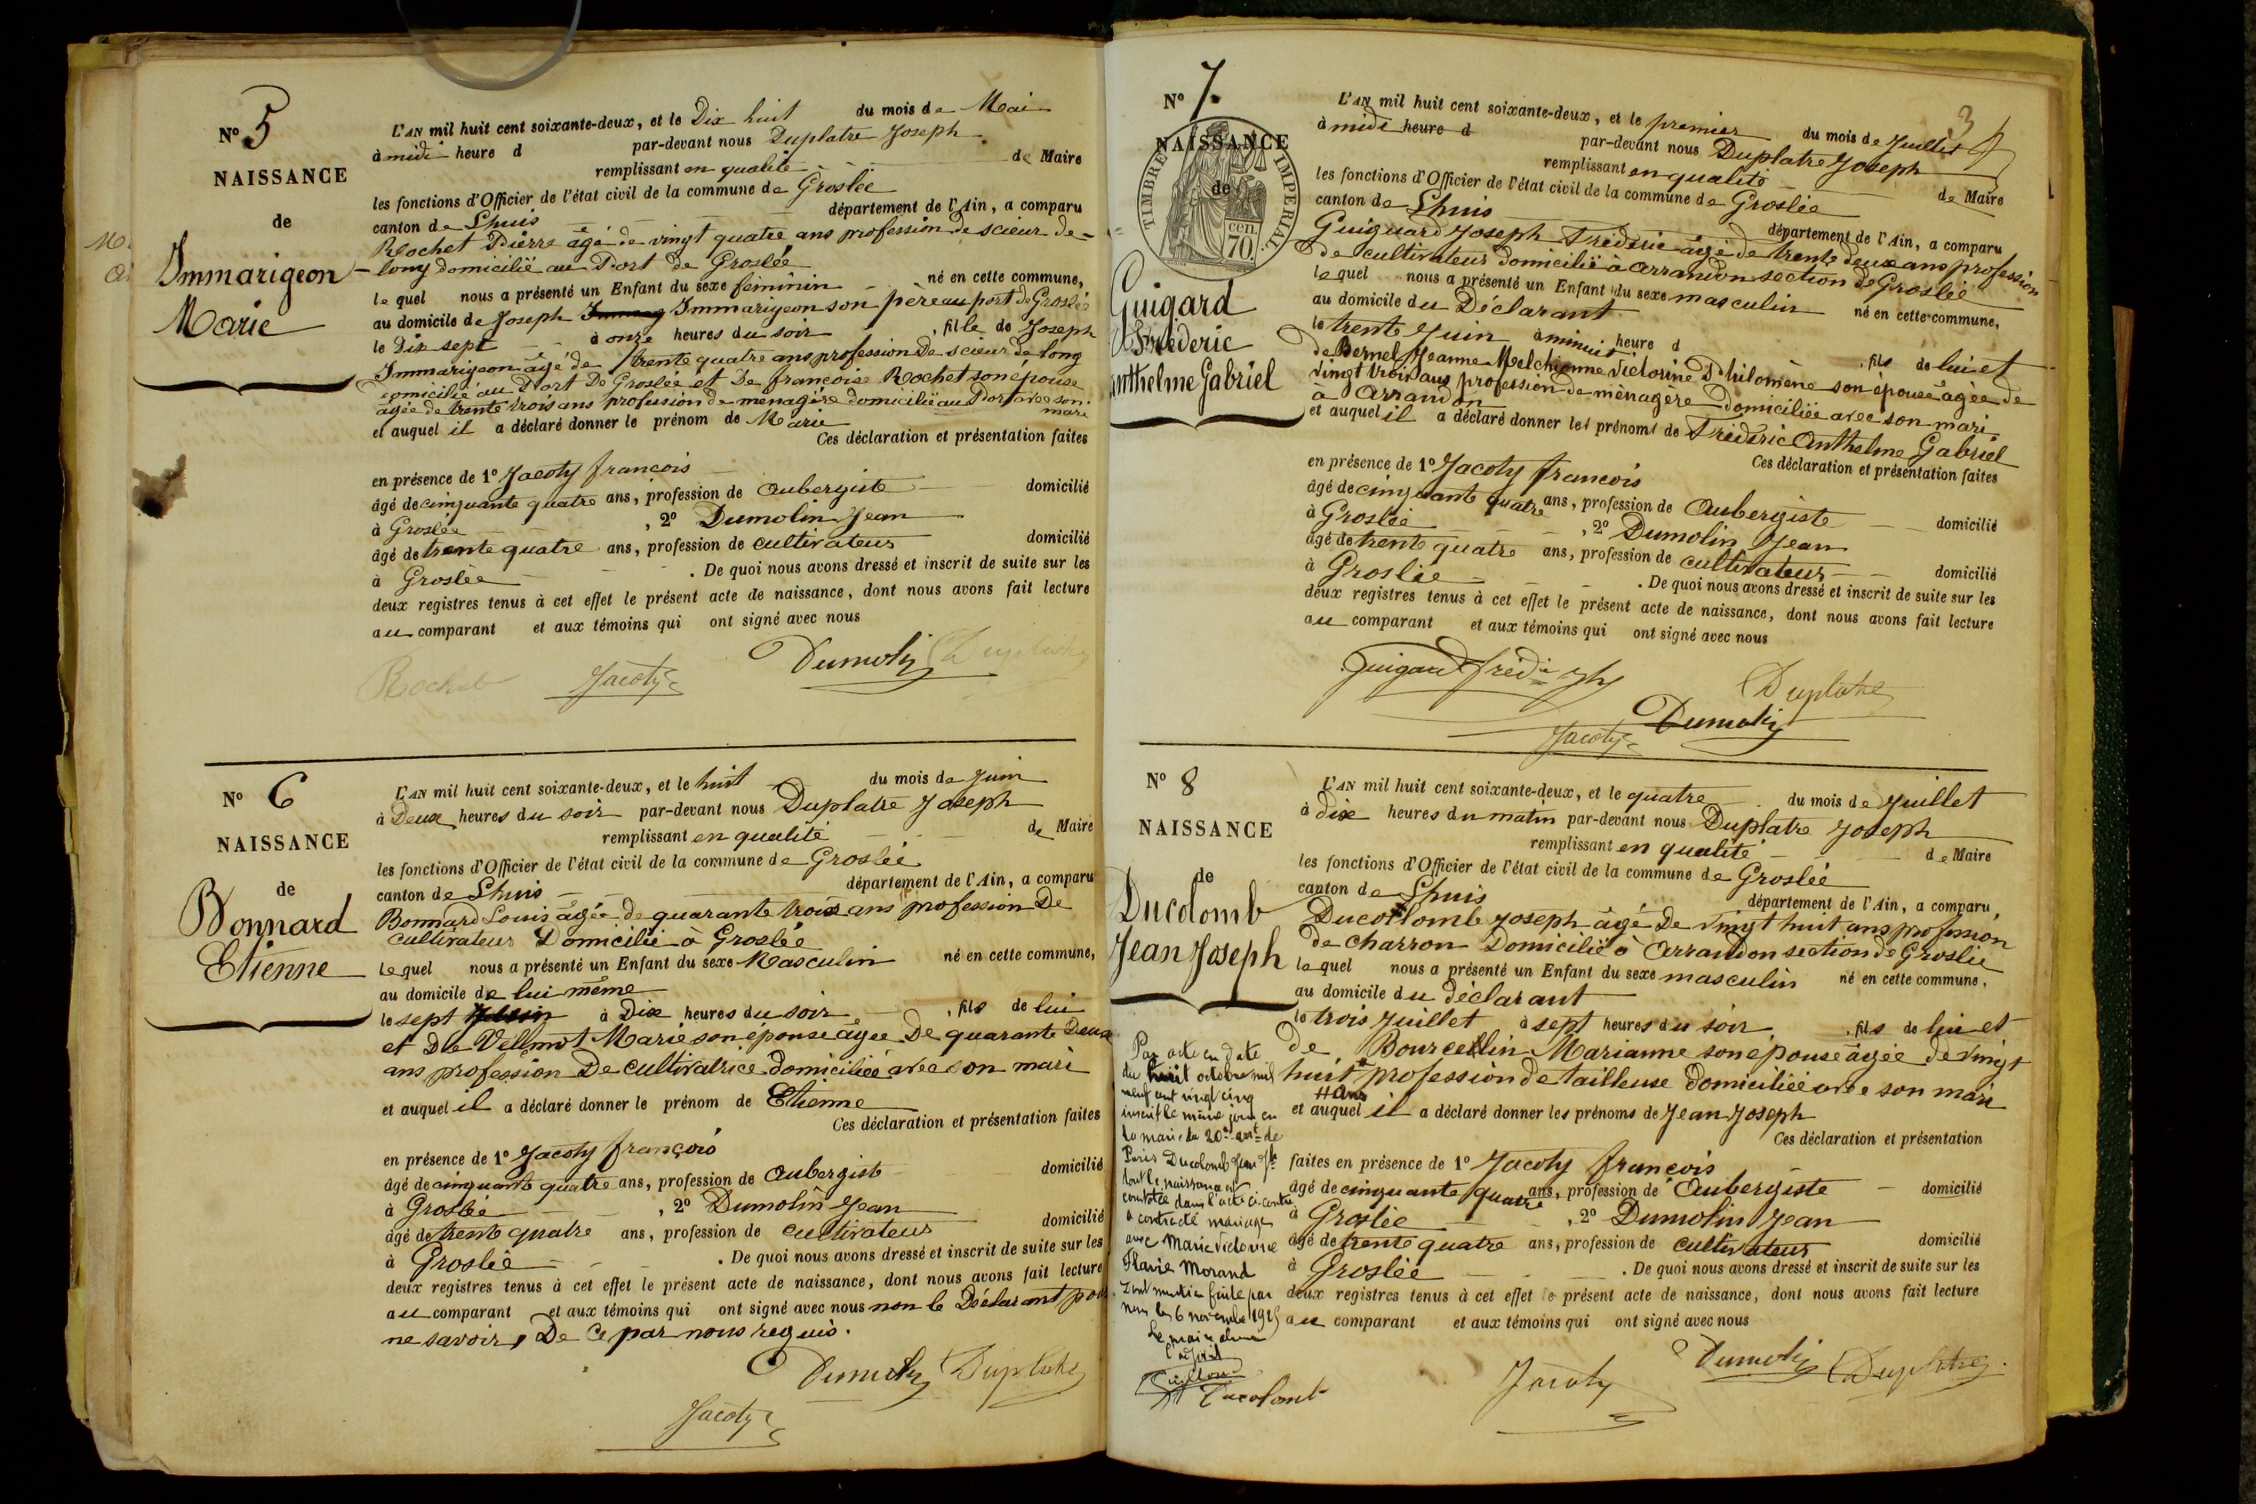 N° 5
NAISSANCE
de
Immarigeon
Marie
L'AN mil huit cent soixante-deux, et le Dix huit du mois de Mai
à midi heure d par-devant nous Duplatre Joseph
remplissant en qualité de Maire
les fonctions d'Officier de l'état civil de la commune de Groslée
canton de Lhuis département de l'Ain, a comparu
Rochet Pierre âgé de vingt quatre ans profession de scieur de
long domicilié au Port de Groslée
lequel nous a présenté un Enfant du sexe feminin né en cette commune,
au domicile de Joseph Immarigeon son père au port de Groslée
le Dix sept à onze heures du soir, fille de Joseph
Immarigeon âgé de trente quatre ans profession De scieur de long
domicilié au Port De Groslée et De françoise Rochet son épouse
âgée de trente trois ans profession de menagère domiciliée au Port avec son
mari
et auquel il a déclaré donner le prénom de Marie
Ces déclaration et présentation faites
en présence de 1° Jacoty françois
âgé de cinquante quatre ans, profession de Aubergiste domicilié
à Groslée, 2° Dumolin Jean
âgé de trente quatre ans, profession de cultivateur domicilié
à Groslée. De quoi nous avons dressé et inscrit de suite sur les
deux registres tenus à cet effet le présent acte de naissance, dont nous avons fait lecture
au comparant et aux témoins qui ont signé avec nous
Rochet Jacoty Dumolin Duplatre
N° 6
NAISSANCE
de
Bonnard
Etienne
L'AN mil huit cent soixante-deux, et le huit du mois de Juin
à Deux heures du soir par-devant nous Duplatre Joseph
remplissant en qualité de Maire
les fonctions d'Officier de l'état civil de la commune de Groslée
canton de Lhuis département de l'Ain, a comparu
Bonnard Louis âgée de quarante trois ans profession De
cultivateur Domicilié à Groslée
lequel nous a présenté un Enfant du sexe Masculin né en cette commune,
au domicile de lui même
le sept à Dix heures du soir, fils de lui
et De Vellmot Marie son épouse âgée De quarante Deux
ans profession De cultivatrice domiciliée avec son mari
et auquel il a déclaré donner le prénom de Etienne
Ces déclaration et présentation faites
en présence de 1° Jacoty françois
âgé de cinquante quatre ans, profession de Aubergiste domicilié
à Groslée, 2° Dumolin Jean
âgé de trente quatre ans, profession de cultivateur domicilié
à Groslée. De quoi nous avons dressé et inscrit de suite sur les
deux registres tenus à cet effet le présent acte de naissance, dont nous avons fait lecture
au comparant et aux témoins qui ont signé avec nous non le Déclarant pour
ne savoir, De ce par nous requis.
Dumolin Duplatre
Jacoty
3
N° 7
NAISSANCE
de
TIMBRE IMPERIAL
70 cen.
Guigard
Fréderic
Anthelme Gabriel
L'AN mil huit cent soixante-deux, et le premier du mois de Juillet
à midi heure d par-devant nous Duplatre Joseph
remplissant en qualité de Maire
les fonctions d'Officier de l'état civil de la commune de Groslée
canton de Lhuis département de l'Ain, a comparu
Guiguard Joseph Fréderic âgé de trente deux ans profession
de cultivateur domicilié à Arrandon section de Groslée
lequel nous a présenté un Enfant du sexe masculin né en cette commune,
au domicile du Déclarant
le trente Juin à minuit heure d, fils de lui et
de Bernel Jeanne Melchionne Victorine Philomène son épouse âgée de
vingt trois ans profession de ménagère Domiciliée avec son mari
à Arrandon
et auquel il a déclaré donner les prénoms de Fréderic Anthelme Gabriel
Ces déclaration et présentation faites
en présence de 1° Jacoty françois
âgé de cinquante quatre ans, profession de Aubergiste domicilié
à Groslée, 2° Dumolin Jean
âgé de trente quatre ans, profession de cultivateur domicilié
à Groslée. De quoi nous avons dressé et inscrit de suite sur les
deux registres tenus à cet effet le présent acte de naissance, dont nous avons fait lecture
au comparant et aux témoins qui ont signé avec nous
Guigard Duplatre
Jacoty Dumolin
N° 8
NAISSANCE
de
Ducolomb
Jean Joseph
L'AN mil huit cent soixante-deux, et le quatre du mois de Juillet
à dix heures du matin par-devant nous Duplatre Joseph
remplissant en qualité de Maire
les fonctions d'Officier de l'état civil de la commune de Groslée
canton de Lhuis département de l'Ain, a comparu,
Ducollomb Joseph âgé De vingt huit ans profession
de charron Domicilié à Arrandon section de Groslée
lequel nous a présenté un Enfant du sexe masculin né en cette commune,
au domicile du déclarant
le trois Juillet à sept heures du soir, fils de lui et
De Bourcellin Marianne son épouse âgée de vingt
huit profession de tailleuse domiciliée avec son mari
ans
et auquel il a déclaré donner les prénoms de Jean Joseph
Ces déclaration et présentation
faites en présence de 1° Jacoty françois
âgé de cinquante quatre ans, profession de Aubergiste domicilié
à Groslée, 2° Dumolin Jean
âgé de trente quatre ans, profession de cultivateur domicilié
à Groslée. De quoi nous avons dressé et inscrit de suite sur les
deux registres tenus à cet effet le présent acte de naissance, dont nous avons fait lecture
au comparant et aux témoins qui ont signé avec nous
Jacoty Dumolin Duplatre
Par acte en date
du huit octobre mil
neuf cent vingt cinq
inscrit le même jour en
la mairie du 20e arrt de
Paris Ducolomb Jean Jh
dont la naissance est
constatée dans l'acte ci-contre
a contracté mariage
avec Marie Victorine
Flavie Morand
Dont mention faite par
nous le 6 novembre 1925
Le maire
l'adjoint
Ducolomb